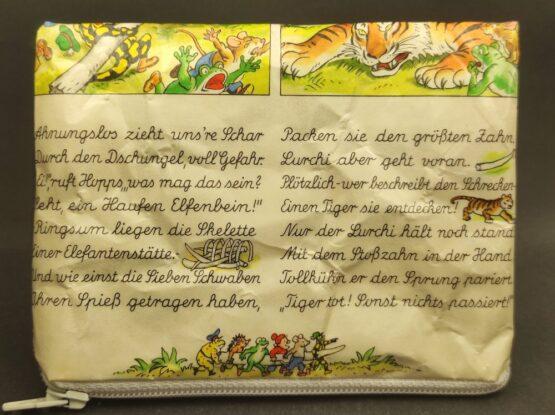 Ahnungslos zieht uns're Schar
Durch den Dschungel, voll Gefahr.
„Ei!“, ruft Hopps, „was mag das sein?
Seht, ein Haufen Elfenbein!“
Ringsum liegen die Skelette
Einer Elefantenstätte.
Und wie einst die Sieben Schwaben
Ihren Spieß getragen haben,
Packen sie den größten Zahn,
Lurchi aber geht voran.
Plötzlich-wer beschreibt den Schrecken-
Einen Tiger sie entdecken!
Nur der Lurchi hält noch stand
Mit dem Stoßzahn in der Hand.
Tollkühn er den Sprung pariert.
„Tiger tot! Sonst nichts passiert!“